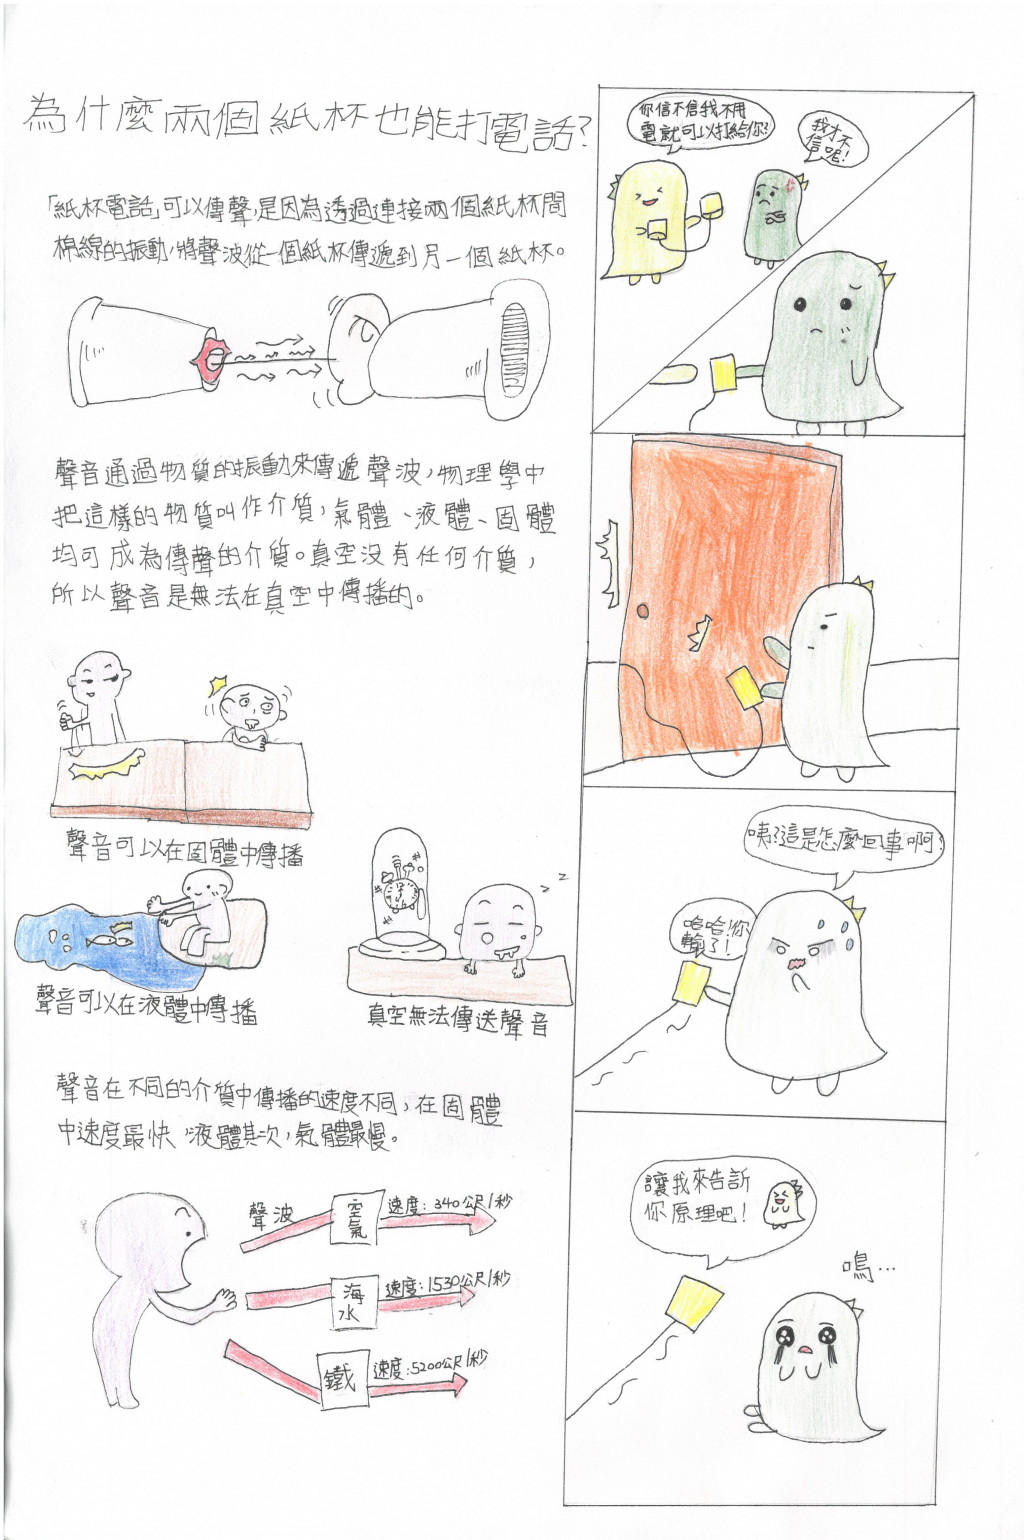 為什麼兩個紙杯也能打電話?
「紙杯電話」可以傳聲,是因為透過連接兩個紙杯間
棉線的振動,將聲波從一個紙杯傳遞到另一個紙杯。
聲音通過物質的振動來傳遞聲波,物理學中
把這樣的物質叫作介質,氣體、液體、固體
均可成為傳聲的介質。真空沒有任何介質,
所以聲音是無法在真空中傳播的。
聲音可以在固體中傳播
聲音可以在液體中傳播
真空無法傳送聲音
z z
聲音在不同的介質中傳播的速度不同,在固體
中速度最快,液體其次,氣體最慢。
聲波
空氣
速度:340公尺/秒
海水
速度:1530公尺/秒
鐵
速度:5200公尺/秒
你信不信我不用
電就可以打給你?
我才不
信呢!
咦?這是怎麼回事啊?
哈哈!你
輸了!
讓我來告訴
你原理吧!
嗚...